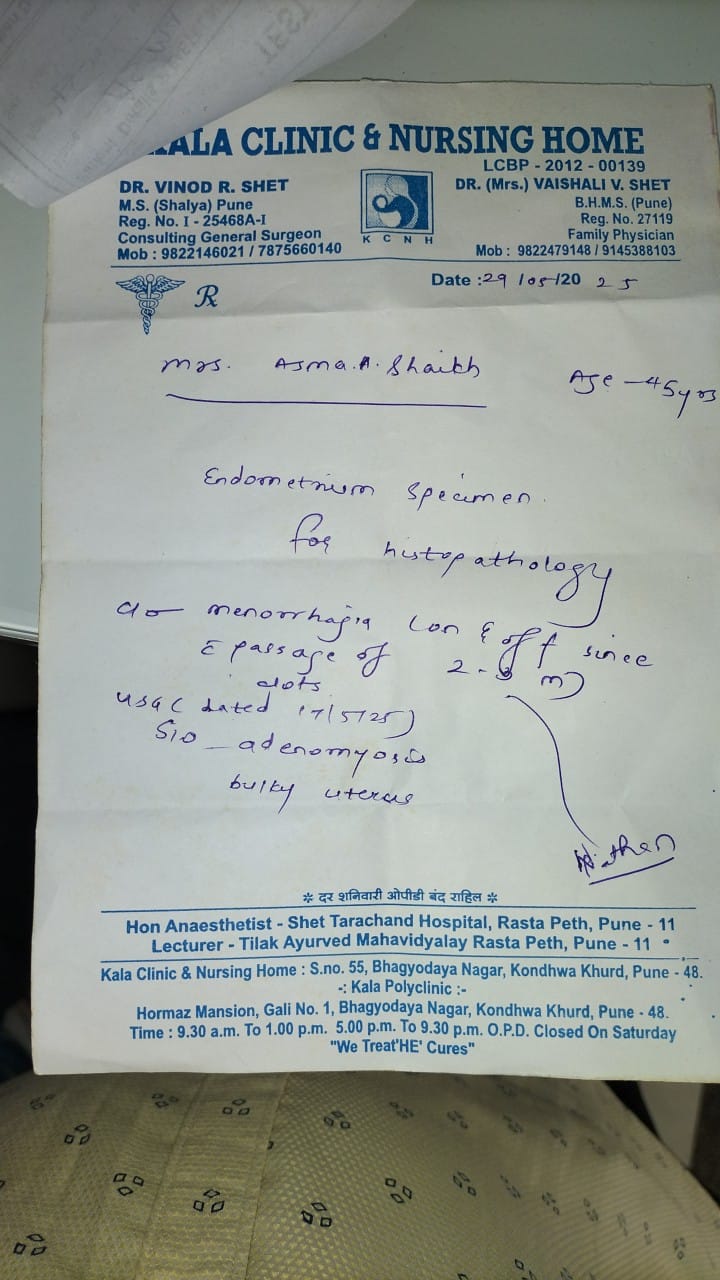 KALA CLINIC & NURSING HOME
LCBP - 2012 - 00139
DR. VINOD R. SHET
M.S. (Shalya) Pune
Reg. No. I - 25468A-I
Consulting General Surgeon
Mob : 9822146021 / 7875660140
K C N H
DR. (Mrs.) VAISHALI V. SHET
B.H.M.S. (Pune)
Reg. No. 27119
Family Physician
Mob : 9822479148 / 9145388103
Date : 29/05/2025
℞
Mrs. Asma. A. Shaikh
Age - 45 yrs
Endometrium specimen.
for histopathology
c/o menorrhagia (on & off since
c̄ passage of 2-3 m)
clots
USG (dated 17/5/25)
S/O - adenomyosis
bulky uterus
❊ दर शनिवारी ओपीडी बंद राहिल ❊
Hon Anaesthetist - Shet Tarachand Hospital, Rasta Peth, Pune - 11
Lecturer - Tilak Ayurved Mahavidyalay Rasta Peth, Pune - 11
Kala Clinic & Nursing Home : S.no. 55, Bhagyodaya Nagar, Kondhwa Khurd, Pune - 48.
-: Kala Polyclinic :-
Hormaz Mansion, Gali No. 1, Bhagyodaya Nagar, Kondhwa Khurd, Pune - 48.
Time : 9.30 a.m. To 1.00 p.m. 5.00 p.m. To 9.30 p.m. O.P.D. Closed On Saturday
"We Treat'HE' Cures"